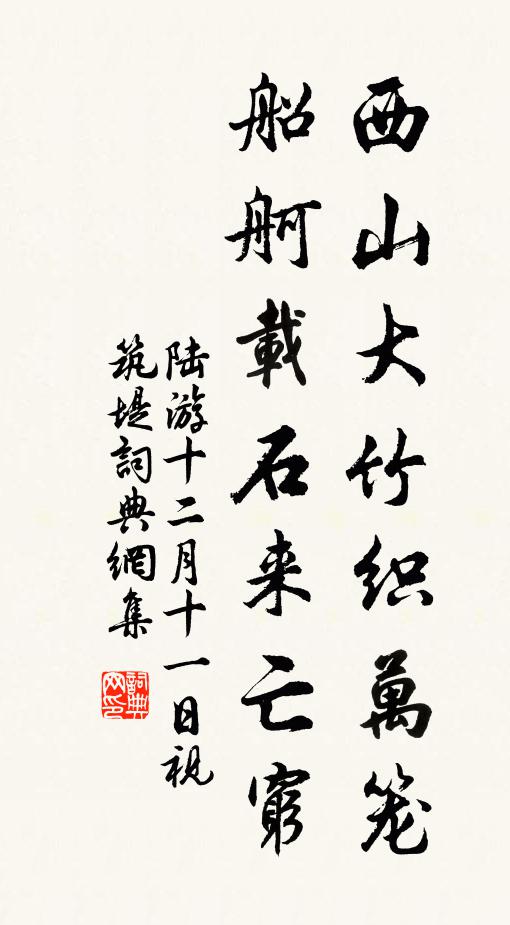 西山大竹织萬笼
船舸載石来亡窮
陆游十二月十一日視
筑堤詞典網集
詞典网印